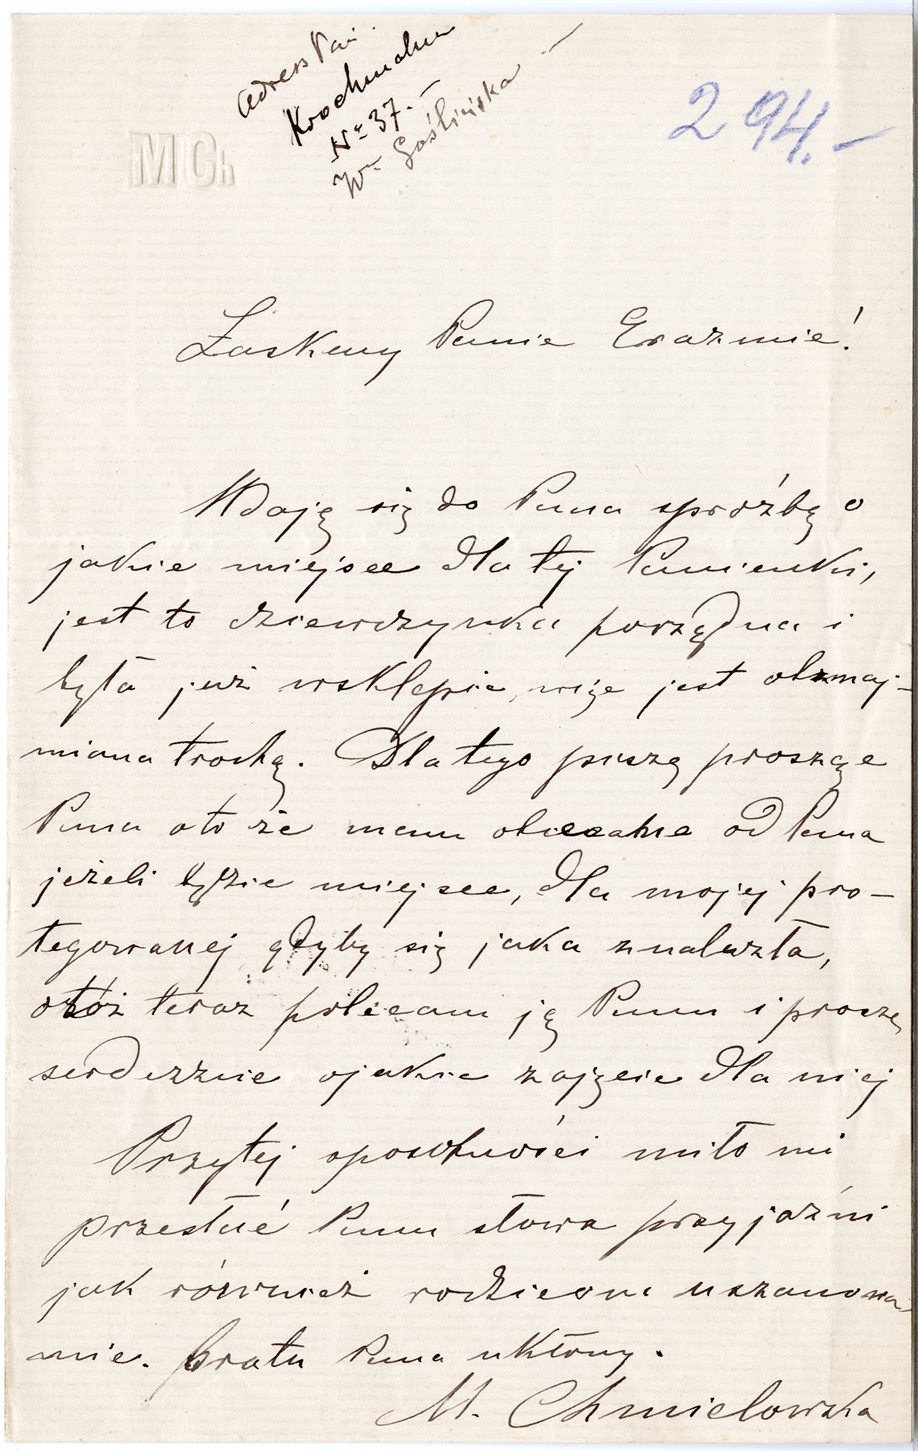 Adres Pan.
Krochmalna
№ 37. –
W. Goślicka
294.–
MCh
Łaskawy Panie Erazmie!
Udaję się do Pana sproźbą o
jakie miejsce dla tej Panienki,
jest to dziewdzynka porządna i
była już wsklepie, więc jest obznaj-
miona trochę. Dlatego piszę proszące
Pana oto że mam obiecane od Pana
jeżeli będzie miejsce, dla mojej pro-
tegowanej gdyby się jaka znalazła,
otóż teraz polecam ją Panu i proszę
serdecznie ojakie zajęcie dla niej
Przytej sposobności miło mi
przesłać Panu słowa przyjaźni
jak również rodzicom uszanowa
nie. Bratu Pana ukłony.
M. Chmielowska